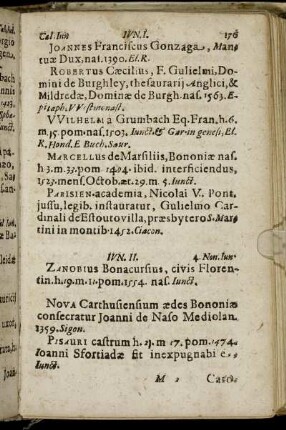 Cal. Iun IVN. I. 176
JOANNES Franciscus Gonzaga, Man-
tuæ Dux, nat. 1390. El. R.
ROBERTUS Cæcilius, F. Gulielmi, Do-
mini de Burghley, thesaurarij Anglici, &
Mildredæ, Dominæ de Burgh. nas. 1563. E-
pitaph. VVestmonast.
VVILHELM9 Grumbach Eq. Fran. h. 6.
m. 15. pom. nas. 1503. Iunct. & Gar. in genesi, El.
R. Hond. E Buch. Saur.
MARCELLUS de Marsiliis, Bononiæ nas.
h 3. m. 33. pom 1404. ibid. interficiendus,
1523. mens. Octob. æt. 29. m. 5. Iunct.
PARISIEN. academia, Nicolai V. Pont.
jussu, legib. instauratur, Gulielmo Car-
dinali de Estoutovilla, præsbytero S. Mar-
tini in montib. 1452. Ciacon.
IVN. II. 4. Non. Iun.
ZANOBIUS Bonacursius, civis Floren-
tin. h. 19. m. 11. pom. 1554. nas. Iunct.
NOVA Carthusiensium ædes Bononiæ
consecratur Joanni de Naso Mediolan.
1359. Sigon.
PISAURI castrum h. 21. m 17. pom. 1474.
Ioanni Sfortiadæ fit inexpugnabi e.,
Iunct.
M 2